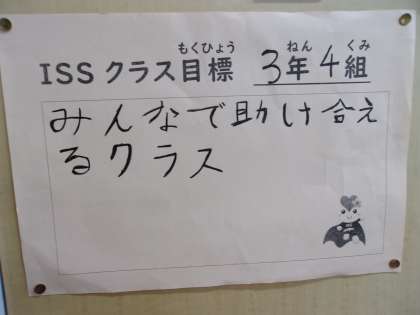 もくひょう ねん くみ
ISS クラス目標 3年4組
みんなで助け合え
るクラス